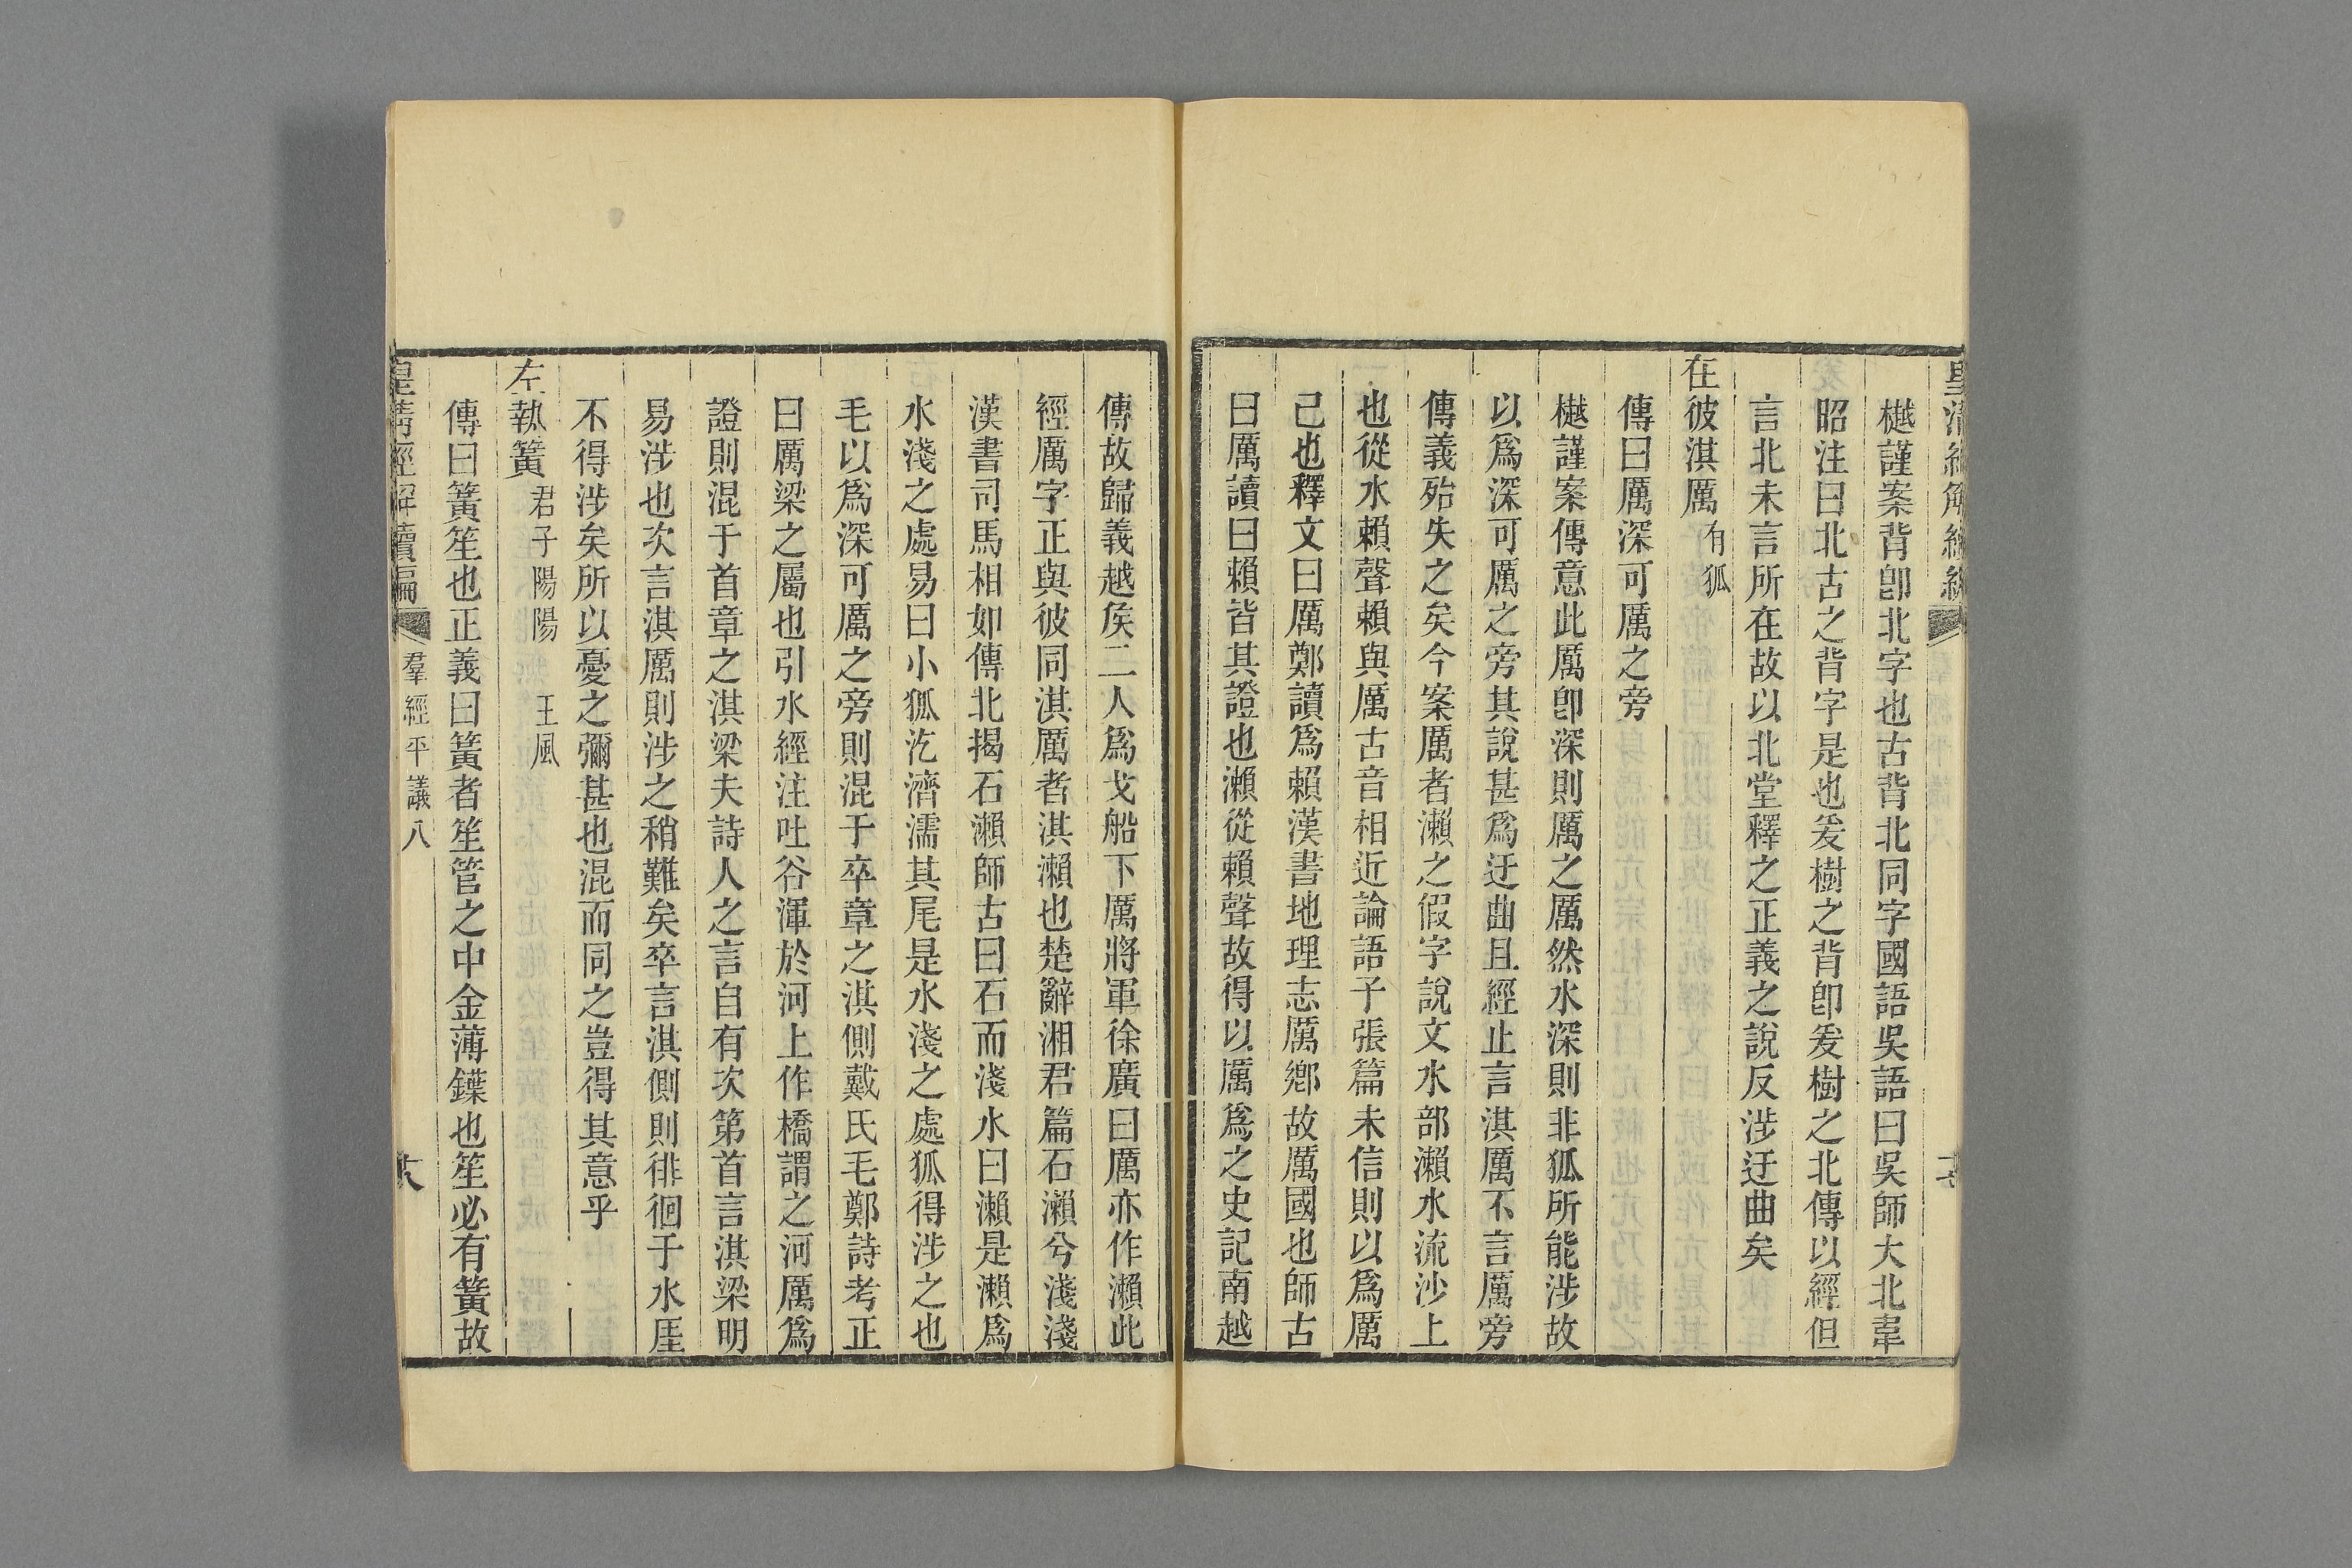 樾謹案背卽北字也古背北同字國語吳語曰吳師大北韋
昭注曰北古之背字是也爰樹之背卽爰樹之北傳以經但
言北未言所在故以北堂釋之正義之說反涉迂曲矣
在彼淇厲 有狐
傳曰厲深可厲之旁
樾謹案傳意此厲卽深則厲之厲然水深則非狐所能涉故
以爲深可厲之旁其說甚爲迂曲且經止言淇厲不言厲旁
傳義殆失之矣今案厲者瀨之假字說文水部瀨水流沙上
也從水賴聲賴與厲古音相近論語子張篇未信則以爲厲
己也釋文曰厲鄭讀爲賴漢書地理志厲鄉故厲國也師古
曰厲讀曰賴皆其證也瀨從賴聲故得以厲爲之史記南越
傳故歸義越矦二人爲戈船下厲將軍徐廣曰厲亦作瀨此
經厲字正與彼同淇厲者淇瀨也楚辭湘君篇石瀨兮淺淺
漢書司馬相如傳北揭石瀨師古曰石而淺水曰瀨是瀨爲
水淺之處易曰小狐汔濟濡其尾是水淺之處狐得涉之也
毛以爲深可厲之旁則混于卒章之淇側戴氏毛鄭詩考正
曰厲梁之屬也引水經注吐谷渾於河上作橋謂之河厲爲
證則混于首章之淇梁夫詩人之言自有次第首言淇梁明
易涉也次言淇厲則涉之稍難矣卒言淇側則徘徊于水厓
不得涉矣所以憂之彌甚也混而同之豈得其意乎
左執簧 君子陽陽 王風
傳曰簧笙也正義曰簧者笙管之中金薄鐷也笙必有簧故
皇淸經解續編 羣經平議八 六